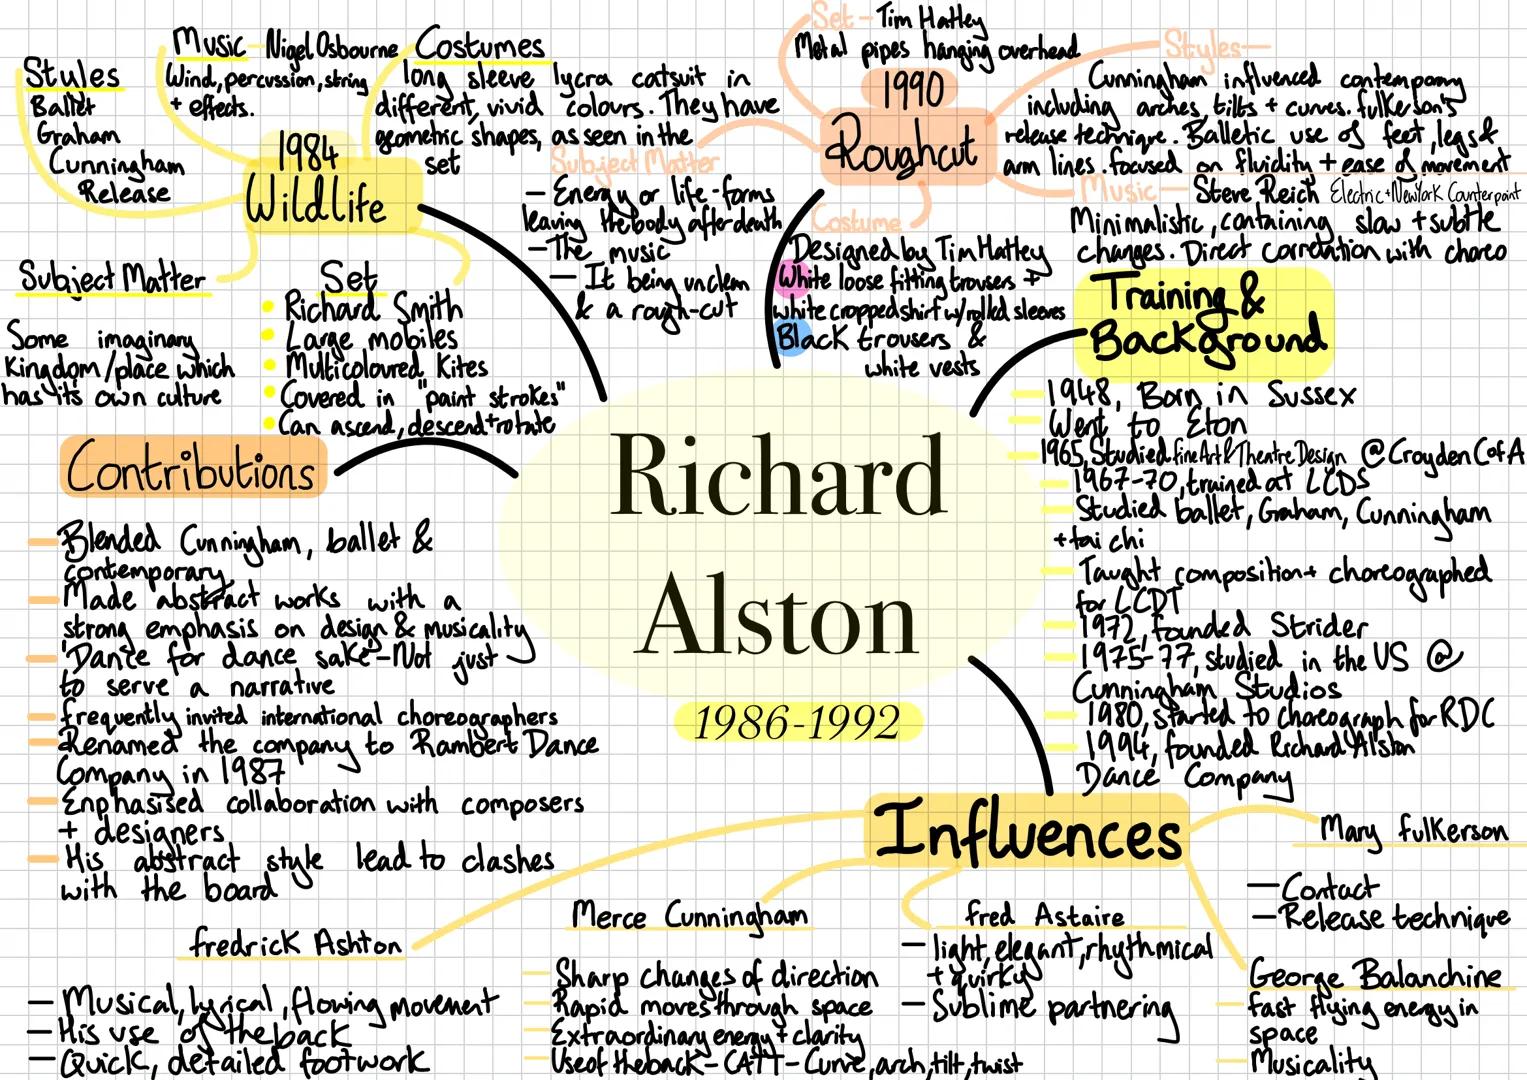 Music - Nigel Osbourne
Wind, percussion, string
+ effects.
Styles
Ballet
Graham
Cunningham
Release
Costumes
long sleeve lycra catsuit in
different, vivid colours. They have
geometric shapes, as seen in the
set
1984
Wildlife
Subject Matter
Some imaginary
Kingdom/place which
has its own culture
Set
Richard Smith
Large mobiles
Multicoloured Kites
Covered in "paint strokes"
Can ascend, descend + rotate
Set - Tim Hatley
Metal pipes hanging overhead
1990
Roughcut
Styles -
Cunningham influenced contemporary
including arches, tilts + curves. fulkerson's
release technique. Balletic use of feet, legs &
arm lines. focused on fluidity + ease of movement
Subject Matter
- Energy or life-forms
leaving the body after death
- The music
- It being unclean
& a rough-cut
Costume
Designed by Tim Hatley
White loose fitting trousers +
white cropped shirt w/rolled sleeves
Black trousers &
white vests
Music - Steve Reich Electric + New York Counterpoint
Minimalistic, containing slow + subtle
changes. Direct correlation with choreo
Training &
Background
1948, Born in Sussex
Went to Eton
1965, Studied fine Art & Theatre Design @ Croyden C of A
1967-70, trained at LCDS
Studied ballet, Graham, Cunningham
+ tai chi
Taught composition + choreographed
for LCDT
1972, founded Strider
1975-77, studied in the US @
Cunningham Studios
1980, started to choreograph for RDC
1994, founded Richard Alston
Dance Company
Richard
Alston
1986-1992
Contributions
Blended Cunningham, ballet &
contemporary
Made abstract works with a
strong emphasis on design & musicality
'Dance for dance sake' - Not just
to serve a narrative
frequently invited international choreographers
Renamed the company to Rambert Dance
Company in 1987
Enphasised collaboration with composers
+ designers
His abstract style lead to clashes
with the board
Influences
fredrick Ashton
- Musical, lyrical, flowing movement
- His use of the back
- Quick, detailed footwork
Merce Cunningham
Sharp changes of direction
Rapid moves through space
Extraordinary energy + clarity
Use of the back - CATT - Curve, arch, tilt, twist
fred Astaire
- light, elegant, rhythmical
+ quirky
- Sublime partnering
Mary fulkerson
- Contact
- Release technique
George Balanchine
fast flying energy in
space
Musicality